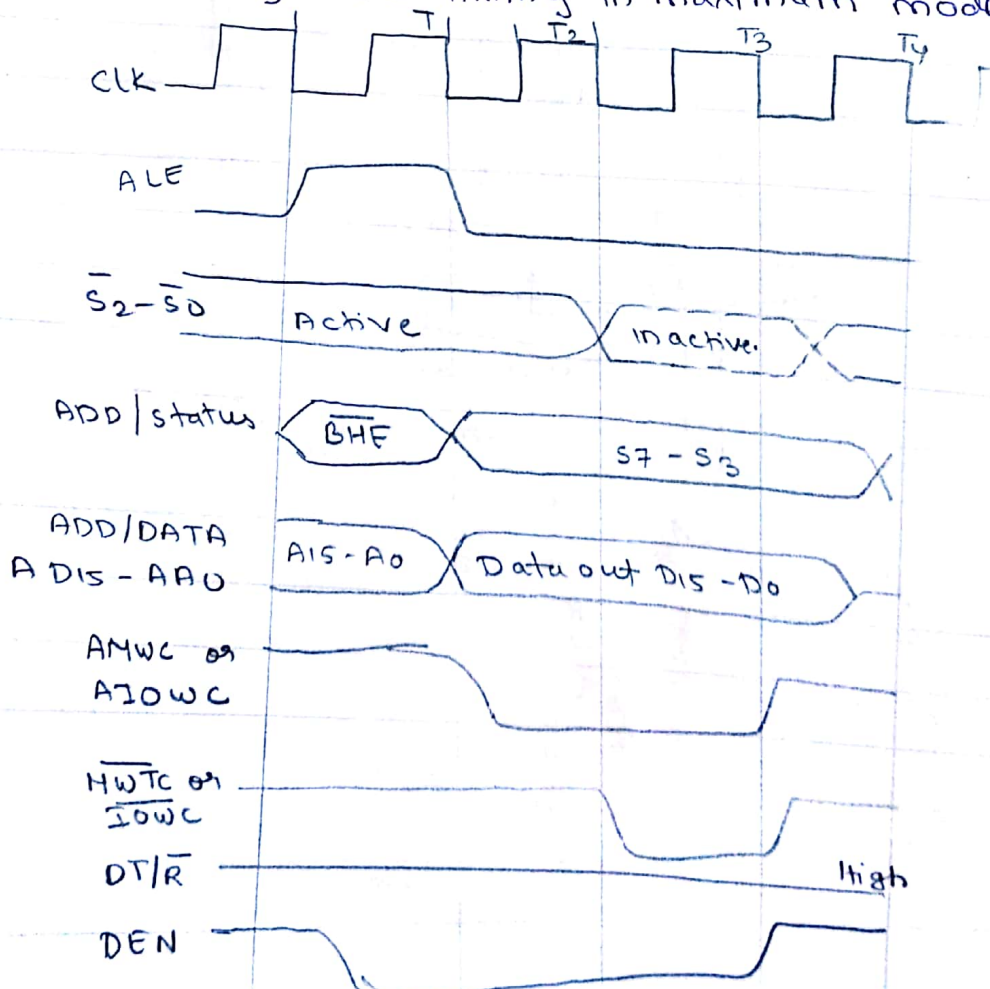 in maximum mod
T T2 T3 T4
CLK
ALE
S̅2-S̅0 Active Inactive.
ADD/status B̅H̅E̅ S7-S3
ADD/DATA
AD15-AA0 A15-A0 Data out D15-D0
AMWC or
AIOWC
M̅W̅T̅C or
I̅O̅W̅C̅
DT/R̅ High
DEN